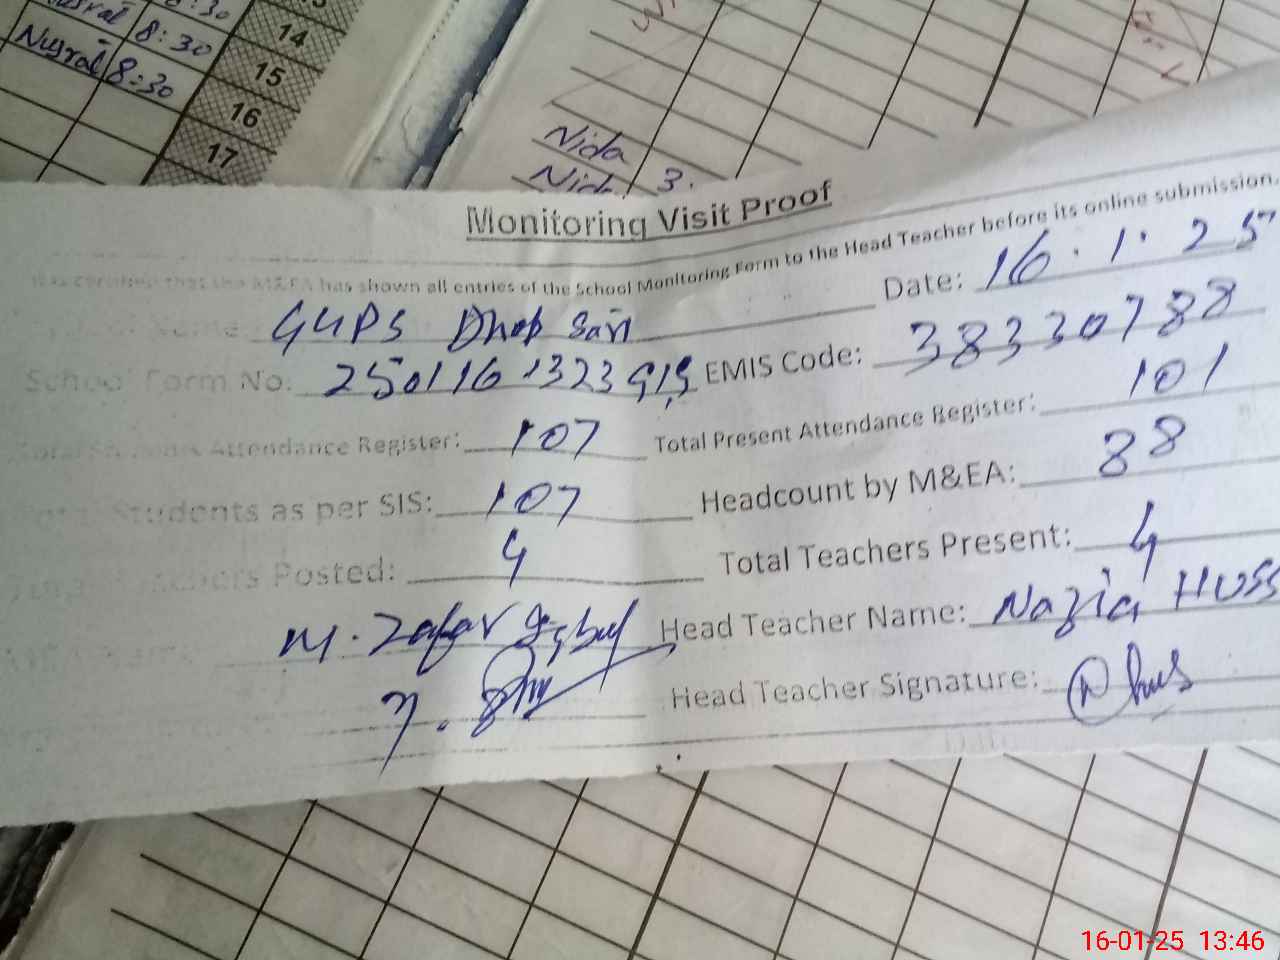 8:30
Nusrat 8:30
Nusrat 8:30
14
15
16
17
Nida
Nida 3.
Monitoring Visit Proof
It is certified that the M&EA has shown all entries of the School Monitoring Form to the Head Teacher before its online submission.
School Name: GGPS Dhok Sari Date: 16.1.25
School Form No: EMIS Code: 38330788
Total Students Attendance Register: 107 Total Present Attendance Register: 101
Total Students as per SIS: 107 Headcount by M&EA: 88
Total Teachers Posted: 4 Total Teachers Present: 4
M. Zafar Iqbal Head Teacher Name: Nazia Huss
Head Teacher Signature:
16-01-25 13:46